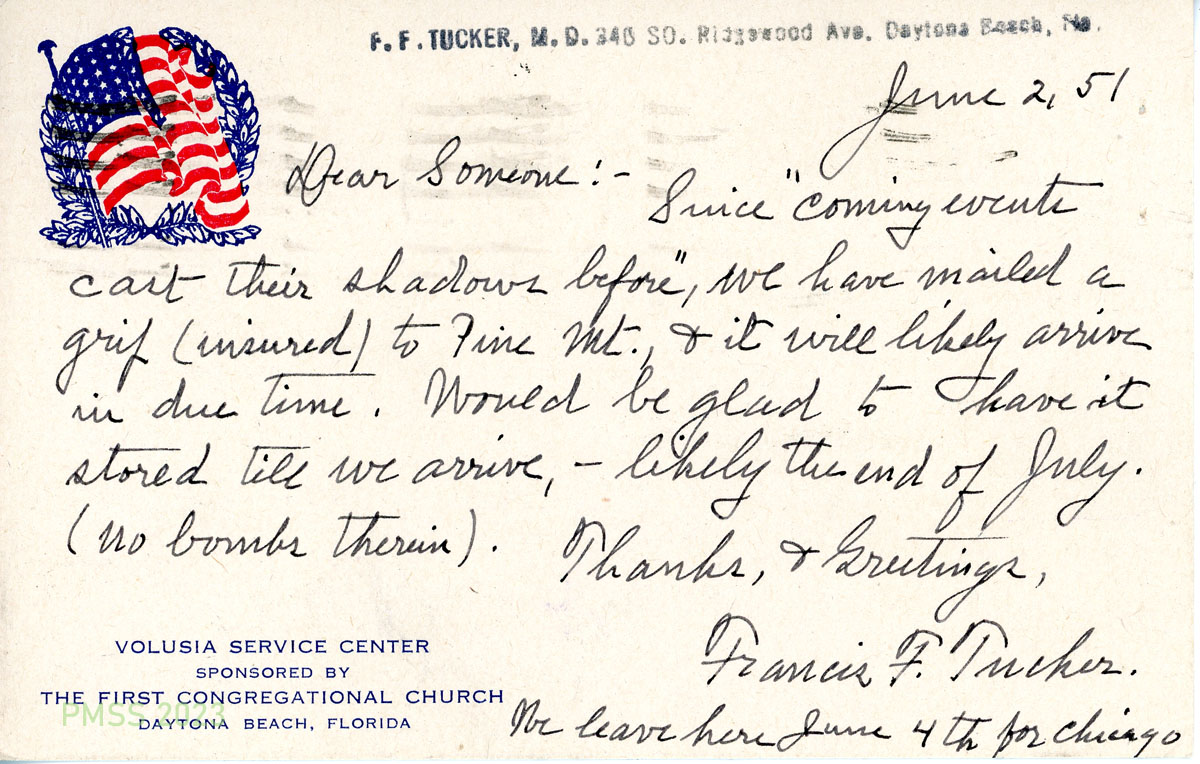 F. F. TUCKER, M. D. 346 SO. Ridgewood Ave. Daytona Beach, Fla.
June 2, 51
Dear Someone:-
Since "coming events
cast their shadows before", we have mailed a
grip (insured) to Pine Mt., & it will likely arrive
in due time. Would be glad to have it
stored till we arrive, - likely the end of July.
(no bombs therein).
Thanks, & Greetings,
Francis F. Tucker.
We leave here June 4th for Chicago
VOLUSIA SERVICE CENTER
SPONSORED BY
THE FIRST CONGREGATIONAL CHURCH
DAYTONA BEACH, FLORIDA
PMSS 2023